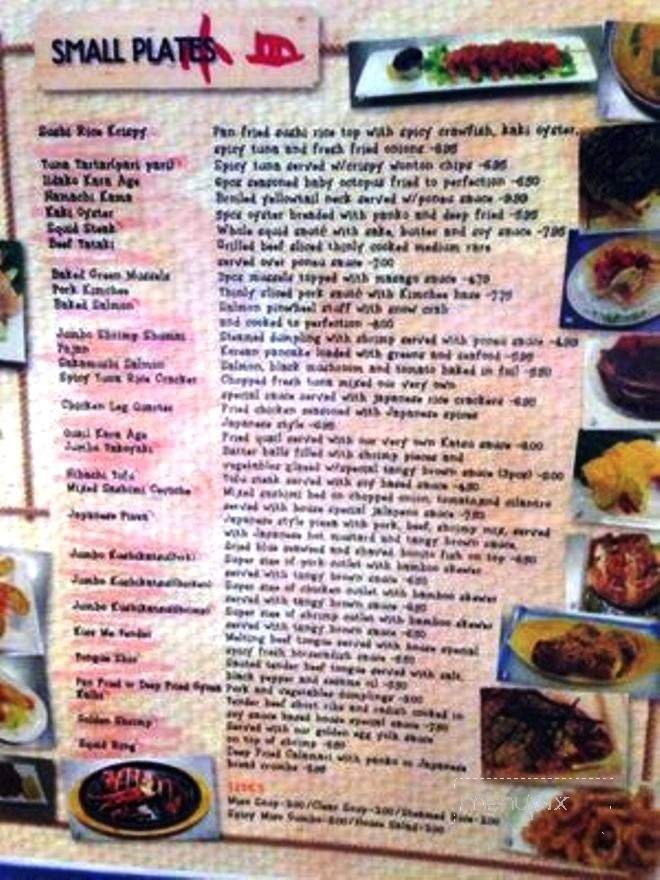 SMALL PLATES
小皿
Sushi Rice Krispy Pan fried sushi rice top with spicy crawfish, kaki oyster,
spicy tuna and fresh fried onions -6.95
Tuna Tartar(pari pari) Spicy tuna served w/crispy wonton chips -6.95
Iidako Kara Age 6pcs seasoned baby octopus fried to perfection -6.50
Hamachi Kama Broiled yellowtail neck served w/ponzu sauce -9.99
Kaki Oyster 5pcs oyster breaded with panko and deep fried -5.95
Squid Steak Whole squid sauté with sake, butter and soy sauce -7.95
Beef Tataki Grilled beef sliced thinly cooked medium rare
served over ponzu sauce -7.00
Baked Green Mussels mussels topped with masago sauce -4.75
Pork Kimchee Thinly sliced pork sauté with Kimchee base -7.75
Baked Salmon Salmon pinwheel stuff with snow crab
and cooked to perfection -8.00
Jumbo Shrimp Shumai Steamed dumpling with shrimp served with ponzu sauce -4.99
Pajun Korean pancake loaded with greens and seafood
Sakamushi Salmon Salmon, black mushroom and tomato baked in foil
Spicy Tuna Rice Cracker Chopped fresh tuna mixed our very own
special sauce served with japanese rice crackers -6.95
Chicken Leg Fried chicken seasoned with Japanese spices
Japanese style -6.95
Quail Kara Age Fried quail served with our very own Katsu sauce -8.00
Jumbo Takoyaki Batter balls filled with shrimp pieces and
vegetables glazed w/special tangy brown sauce (3pcs)
Hibachi Tofu Tofu steak served with soy based sauce
Mixed Sashimi Ceviche Mixed sashimi bed on chopped onion, tomato,and cilantro
served with house special jalapeno sauce
Japanese Pizza Japanese style pizza with pork, beef, shrimp mix, served
with Japanese hot mustard and tangy brown sauce,
dried blue seaweed and shaved bonito fish on top
Jumbo Kushikatsu(Pork) Super size of pork cutlet with bamboo skewer
served with tangy brown sauce
Jumbo Kushikatsu(Chicken) Super size of chicken cutlet with bamboo skewer
served with tangy brown sauce
Jumbo Kushikatsu(Shrimp) Super size of shrimp cutlet with bamboo skewer
served with tangy brown sauce
Kiss Me Tender Melting beef tongue served with house special
spicy fresh horseradish sauce
Tongue Shio Sauted tender beef tongue served with salt,
black pepper and sesame oil
Pan Fried or Deep Fried Gyoza Pork and vegetables dumplings
Kalbi Tender beef short ribs and radish cooked in
soy sauce based house special sauce
Golden Shrimp Served with our golden egg yolk sauce
on top of shrimp
Squid Ring Deep Fried Calamari with panko or Japanese
bread crumbs
SIDES
Miso Soup-2.00/Clear Soup-2.00/Steamed Rice-2.00
Spicy Miso /House Salad
menupix